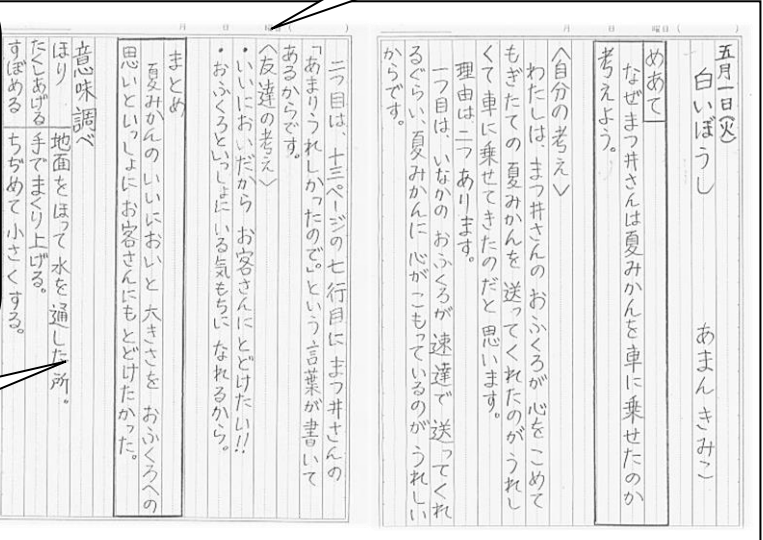 五月一日(火)
白いぼうし　あまんきみこ
めあて
なぜまつ井さんは夏みかんを車に乗せたのか
考えよう。
〈自分の考え〉
わたしは、まつ井さんのおふくろが心をこめて
もぎたての夏みかんを送ってくれたのがうれし
くて車に乗せてきたのだと思います。
理由は二つあります。
一つ目は、いなかのおふくろが速達で送ってくれ
るぐらい、夏みかんに心がこもっているのがうれしい
からです。
月　日　曜日(　)
二つ目は、十三ページの七行目にまつ井さんの
「あまりうれしかったので。」という言葉が書いて
あるからです。
〈友達の考え〉
・いいにおいだからお客さんにとどけたい!!
・おふくろといっしょにいる気もちになれるから。
まとめ
夏みかんのいいにおいと大きさをおふくろへの
思いといっしょにお客さんにもとどけたかった。
意味調べ
ほり　地面をほって水を通した所。
たくしあげる　手でまくり上げる。
すぼめる　ちぢめて小さくする。
月　日　曜日(　)